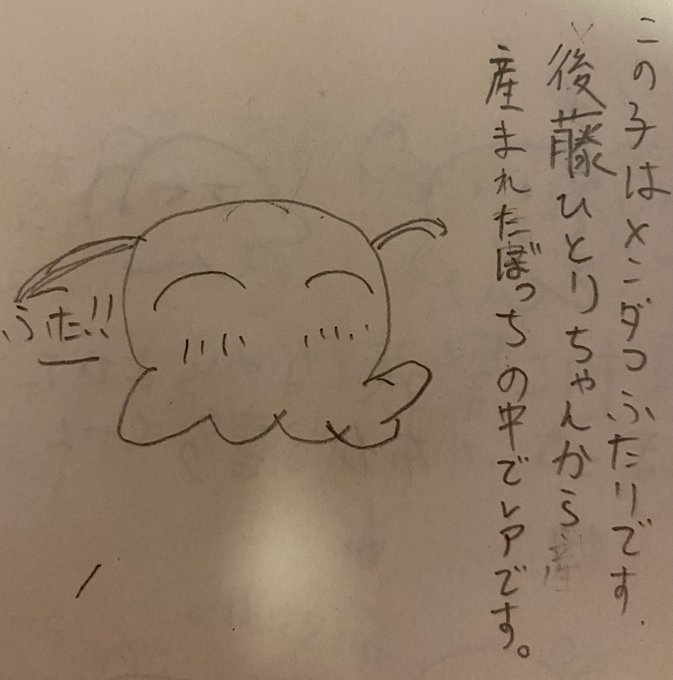 この子はメンダコふたりです.
後藤ひとりちゃんから
産まれたぼっちの中でレアです。
ふた!!